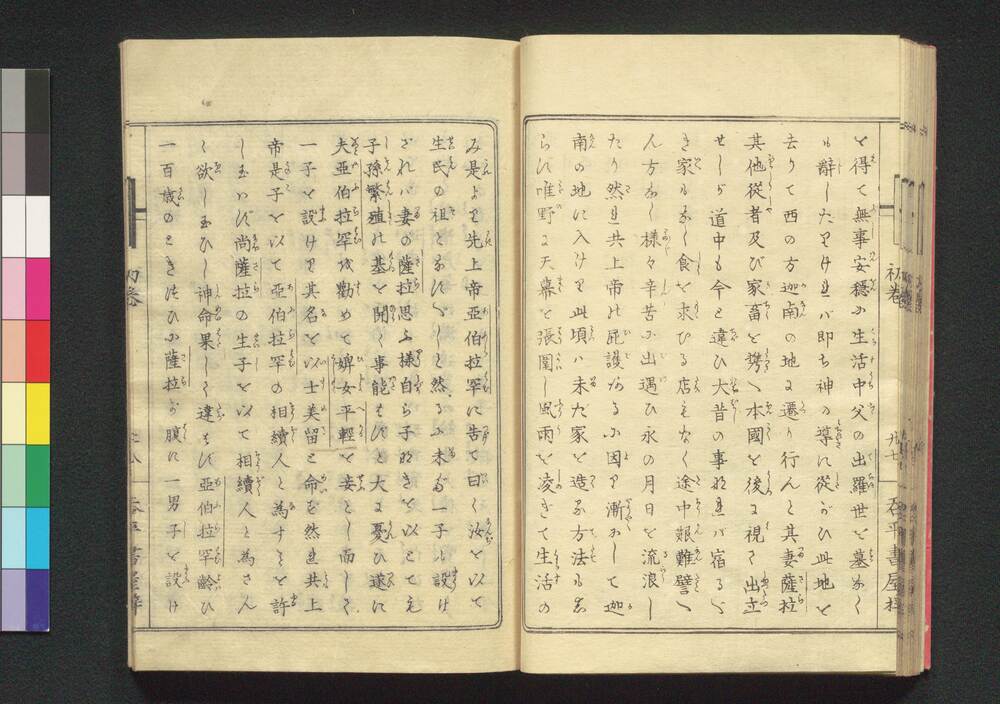 を得て無事安穏に生活中父の出羅世を墓なく
も辭したりければ即ち神の導に從がひ此地を
去りて西の方迦南の地に遷り行んと其妻薩拉
其他從者及び家畜を携へ本國を後に視て出立
せしが道中も今と違ひ大昔の事なれば宿るべ
き家もなく食を求むる店もなく途中艱難譬へ
ん方なし樣々辛苦に出遇ひ永の月日を流浪し
たり然れ共上帝の庇護あるに因り漸にして迦
南の地に入けり此頃は未だ家を造る方法もあ
らず唯野に天幕を張圍し風雨を凌ぎて生活の
初卷
み是より先上帝亞伯拉罕に告て曰く汝を以て
生民の祖となすべしと然るに未だ一子も設け
ざれば妻の薩拉思ふ樣自ら子なきを以てとても
子孫繁殖の基を開く事能はずと大に憂ひ遂に
夫亞伯拉罕を勸めて婢女平輕を妾とし而して
一子を設けり其名を以士美留と命ぜ然れ共上
帝是子を以て亞伯拉罕の相續人と為すことを許
し玉はず尚薩拉の生子を以て相續人と為さん
と欲し玉ひし神命果して違はず亞伯拉罕齢ひ
一百歳のときつひに薩拉が腹に一男子を設け